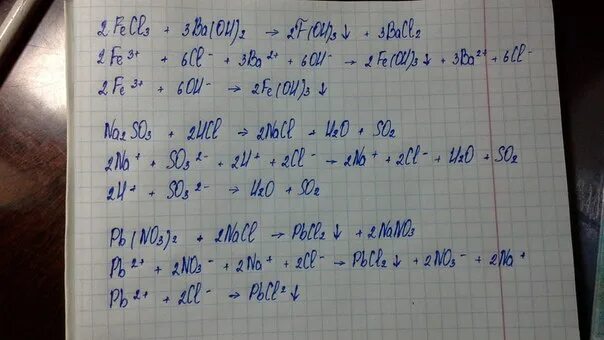 2FeCl₃ + 3Ba(OH)₂ → 2F(OH)₃↓ + 3BaCl₂
2Fe³⁺ + 6Cl⁻ + 3Ba²⁺ + 6OH⁻ → 2Fe(OH)₃↓ + 3Ba²⁺ + 6Cl⁻
2Fe³⁺ + 6OH⁻ → 2Fe(OH)₃↓
Na₂SO₃ + 2HCl → 2NaCl + H₂O + SO₂
2Na⁺ + SO₃²⁻ + 2H⁺ + 2Cl⁻ → 2Na⁺ + 2Cl⁻ + H₂O + SO₂
2H⁺ + SO₃²⁻ → H₂O + SO₂
Pb(NO₃)₂ + 2NaCl → PbCl₂↓ + 2NaNO₃
Pb²⁺ + 2NO₃⁻ + 2Na⁺ + 2Cl⁻ → PbCl₂↓ + 2NO₃⁻ + 2Na⁺
Pb²⁺ + 2Cl⁻ → PbCl²↓